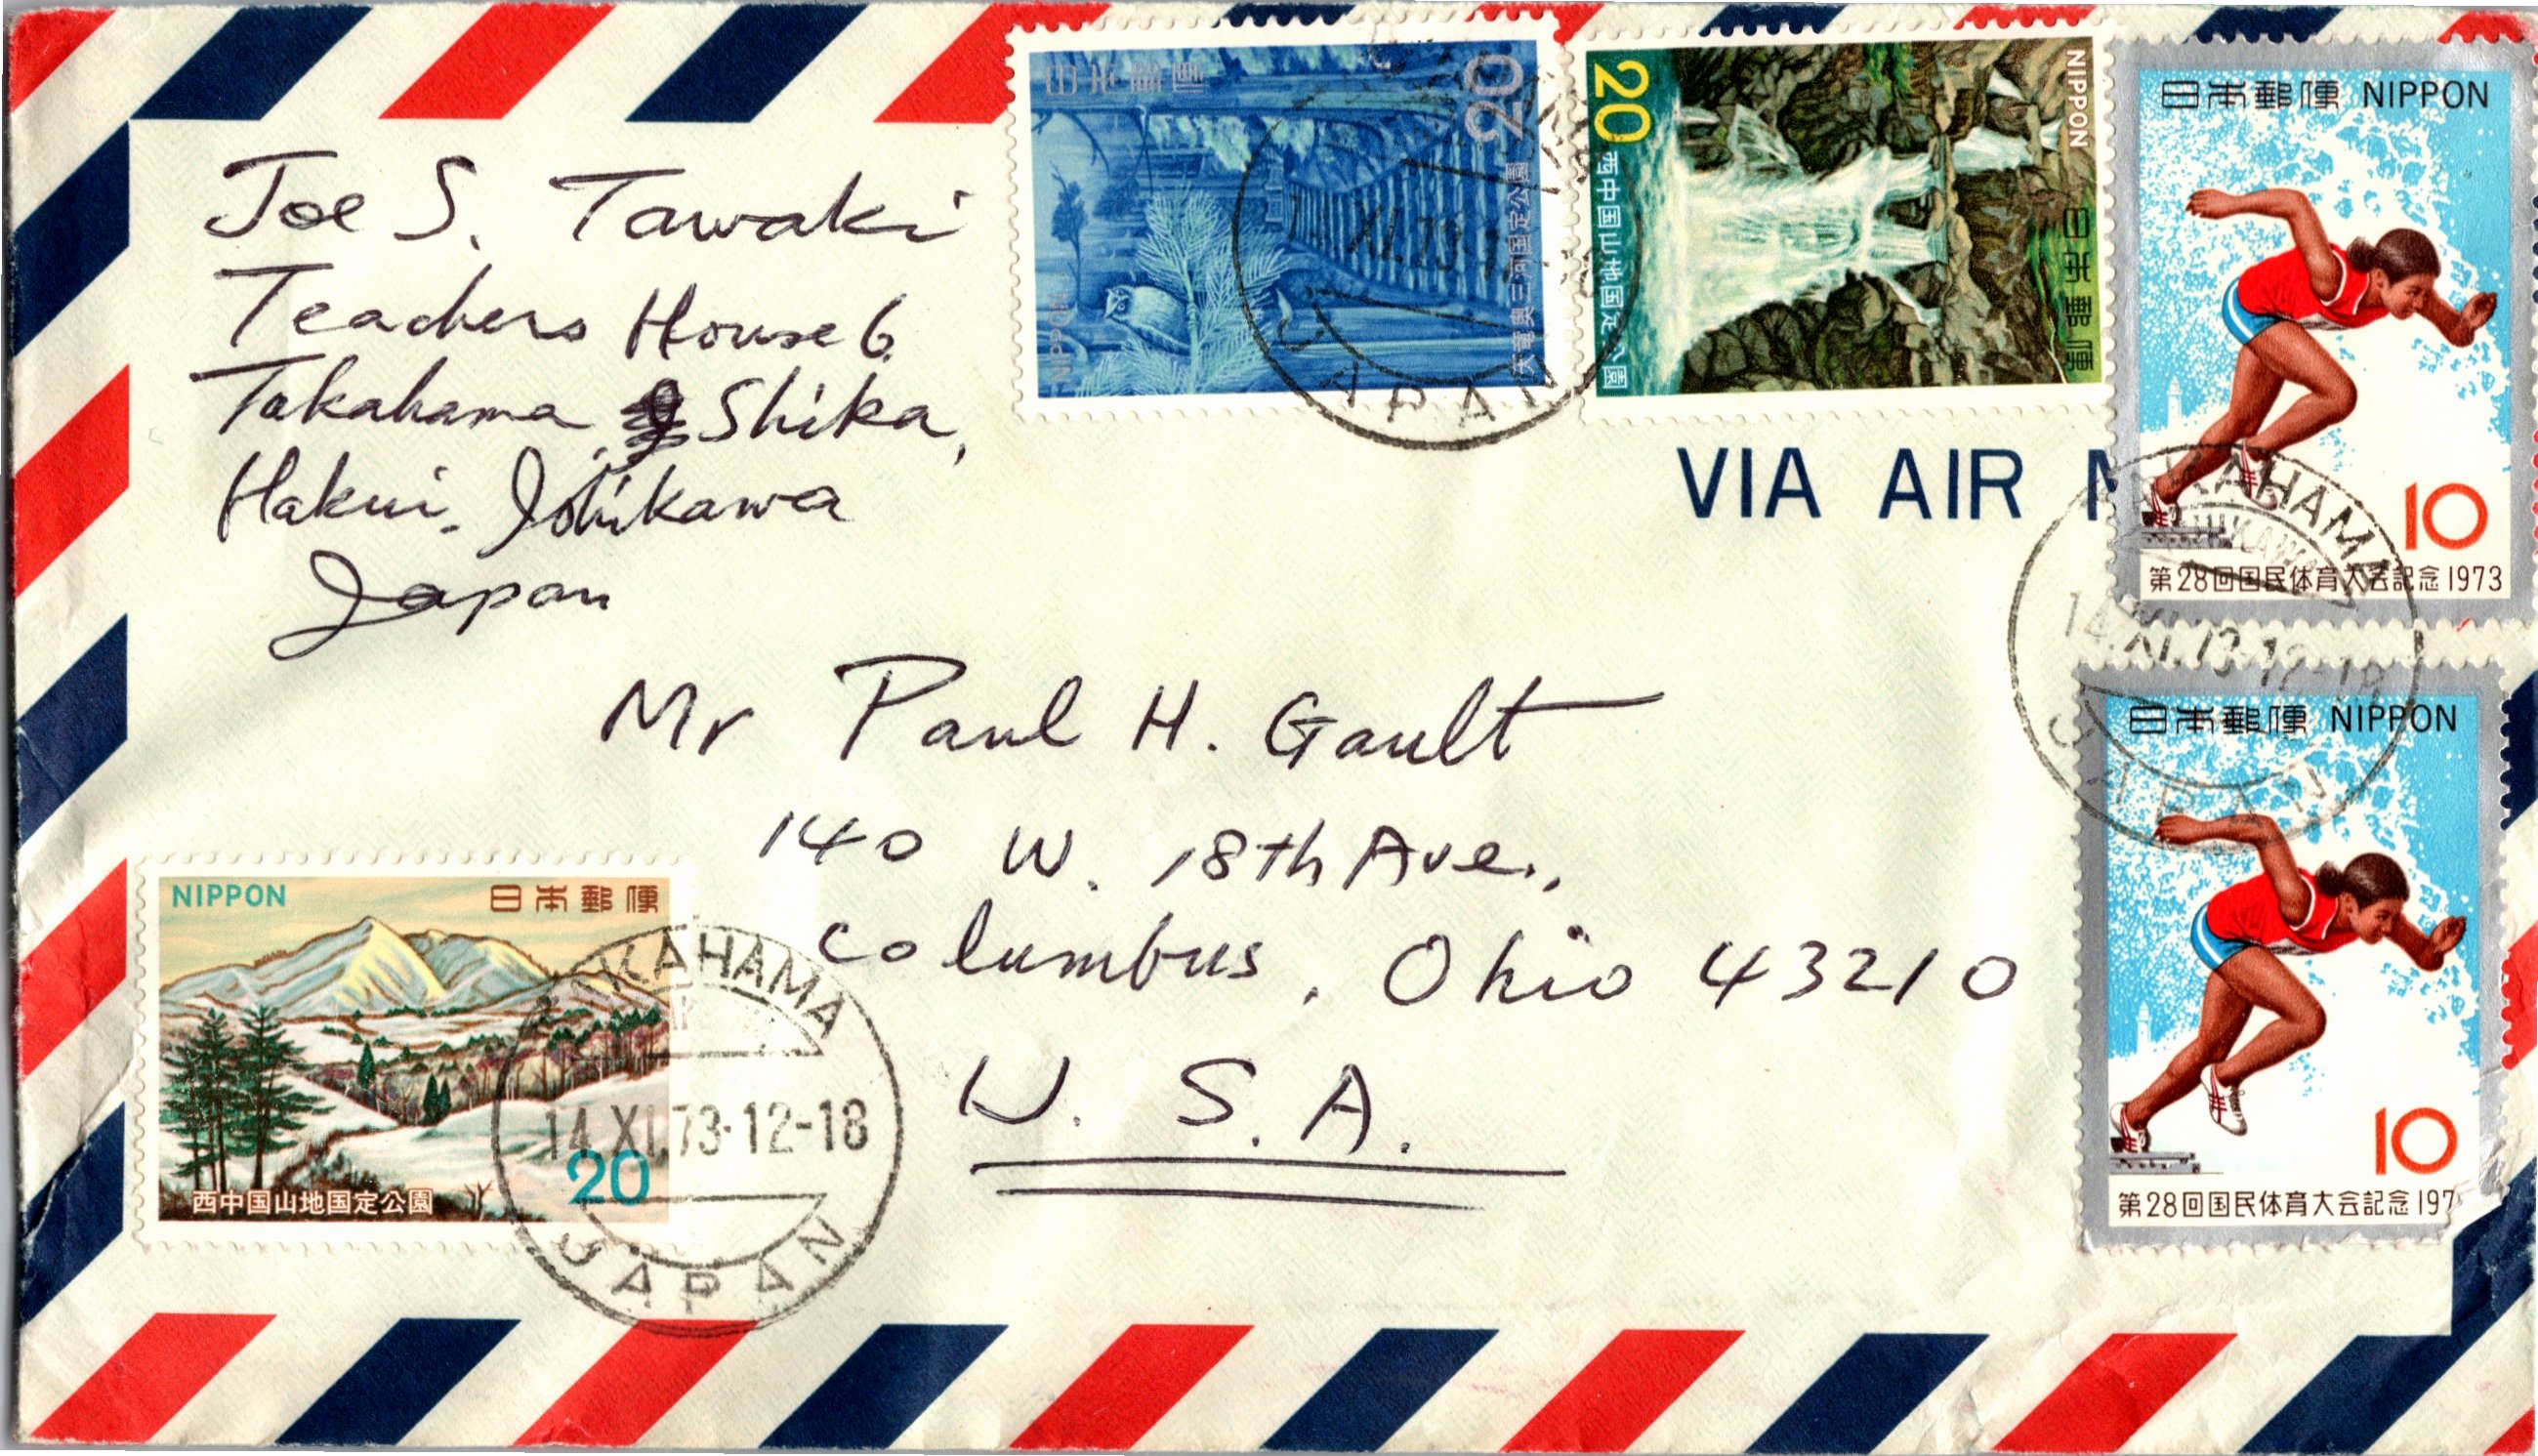 Joe S. Tawaki
Teachers House 6
Takahama, Shika,
Hakui, Ishikawa
Japan
日本郵便
20
天竜奥三河国定公園
NIPPON
JAPAN
20
西中国山地国定公園
NIPPON
日本郵便
日本郵便 NIPPON
10
第28回国民体育大会記念1973
VIA AIR M
TAKAHAMA
ISHIKAWA
14.XI.73.12-18
JAPAN
日本郵便 NIPPON
10
第28回国民体育大会記念197
Mr Paul H. Gault
140 W. 18th Ave.,
Columbus, Ohio 43210
U. S. A.
NIPPON 日本郵便
20
西中国山地国定公園
TAKAHAMA
14.XI.73.12-18
JAPAN